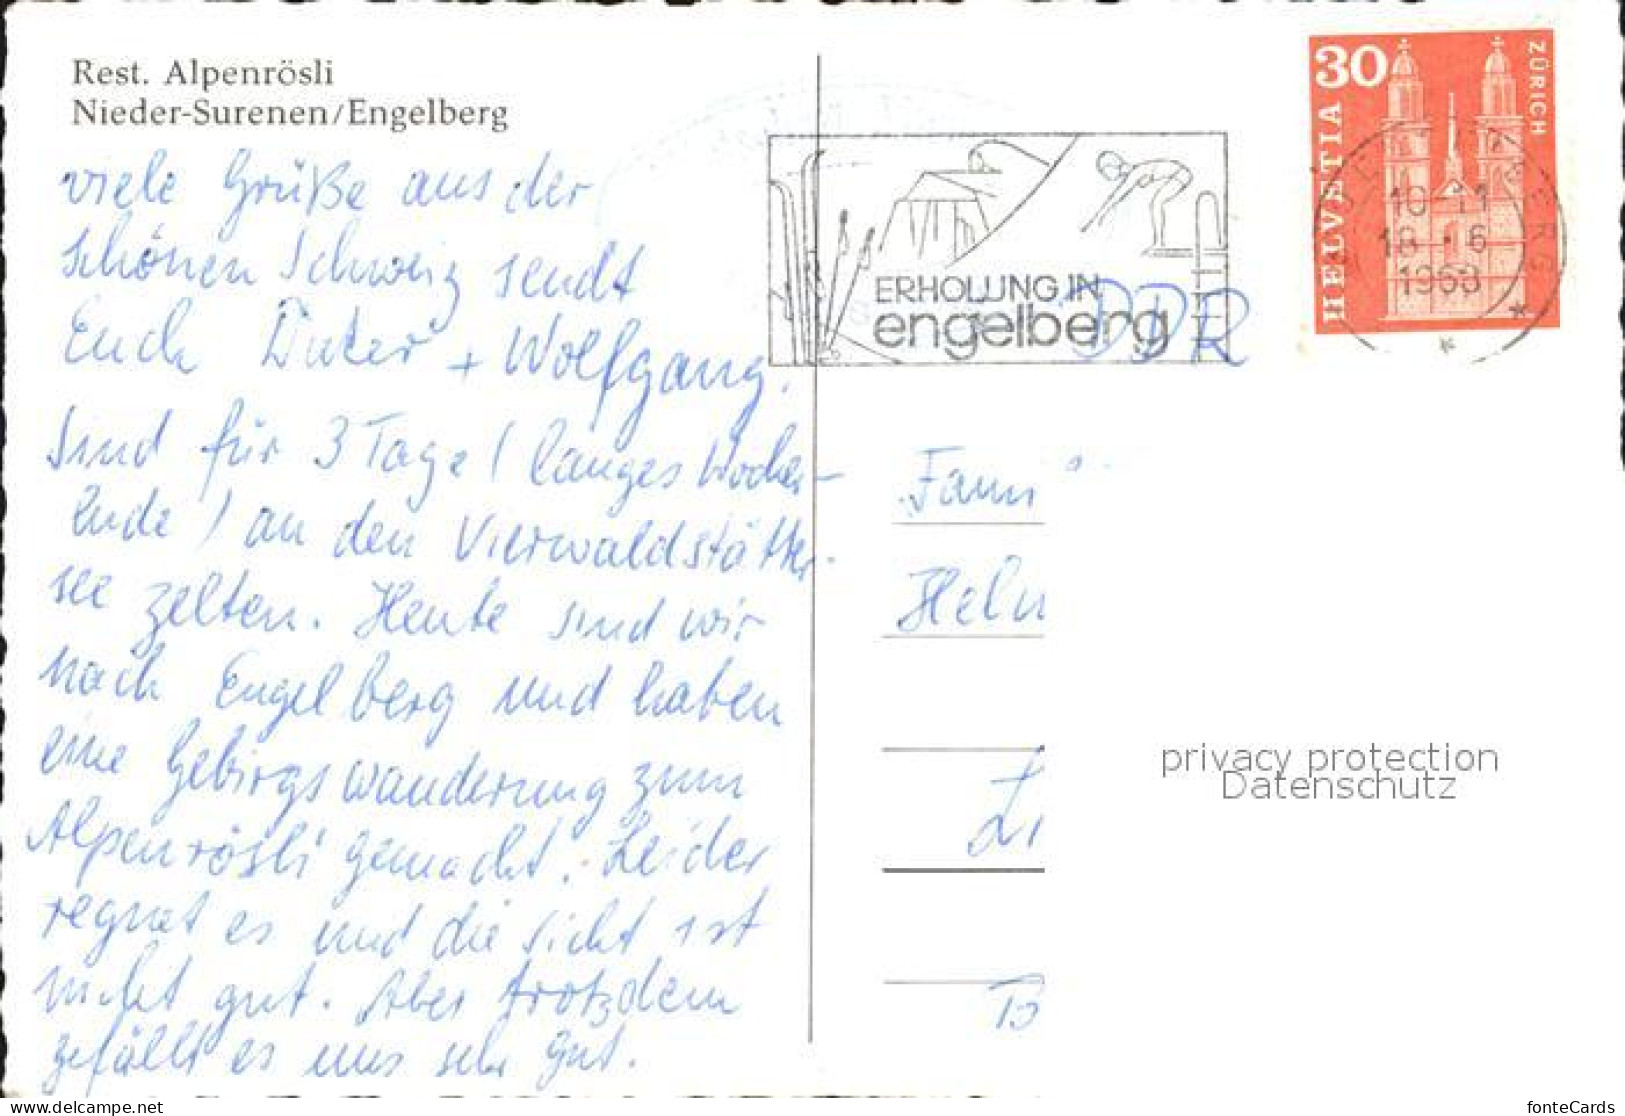 Rest. Alpenrösli
Nieder-Surenen/Engelberg
viele Grüße aus der
schönen Schweiz sendt
Euch Dieter + Wolfgang.
Sind für 3 Tage (langes Wochen-
ende) an den Vierwaldstätter-
see zelten. Heute sind wir
nach Engelberg und haben
eine Gebirgswanderung zum
Alpenrösli gemacht. Leider
regnet es und die Sicht ist
nicht gut. Aber trotzdem
gefällt es uns sehr gut.
ERHOLUNG IN
engelberg
DDR
30
HELVETIA
ZÜRICH
10-11
18.-6
Fami
Heln
privacy protection
Datenschutz
www.delcampe.net
fonteCards